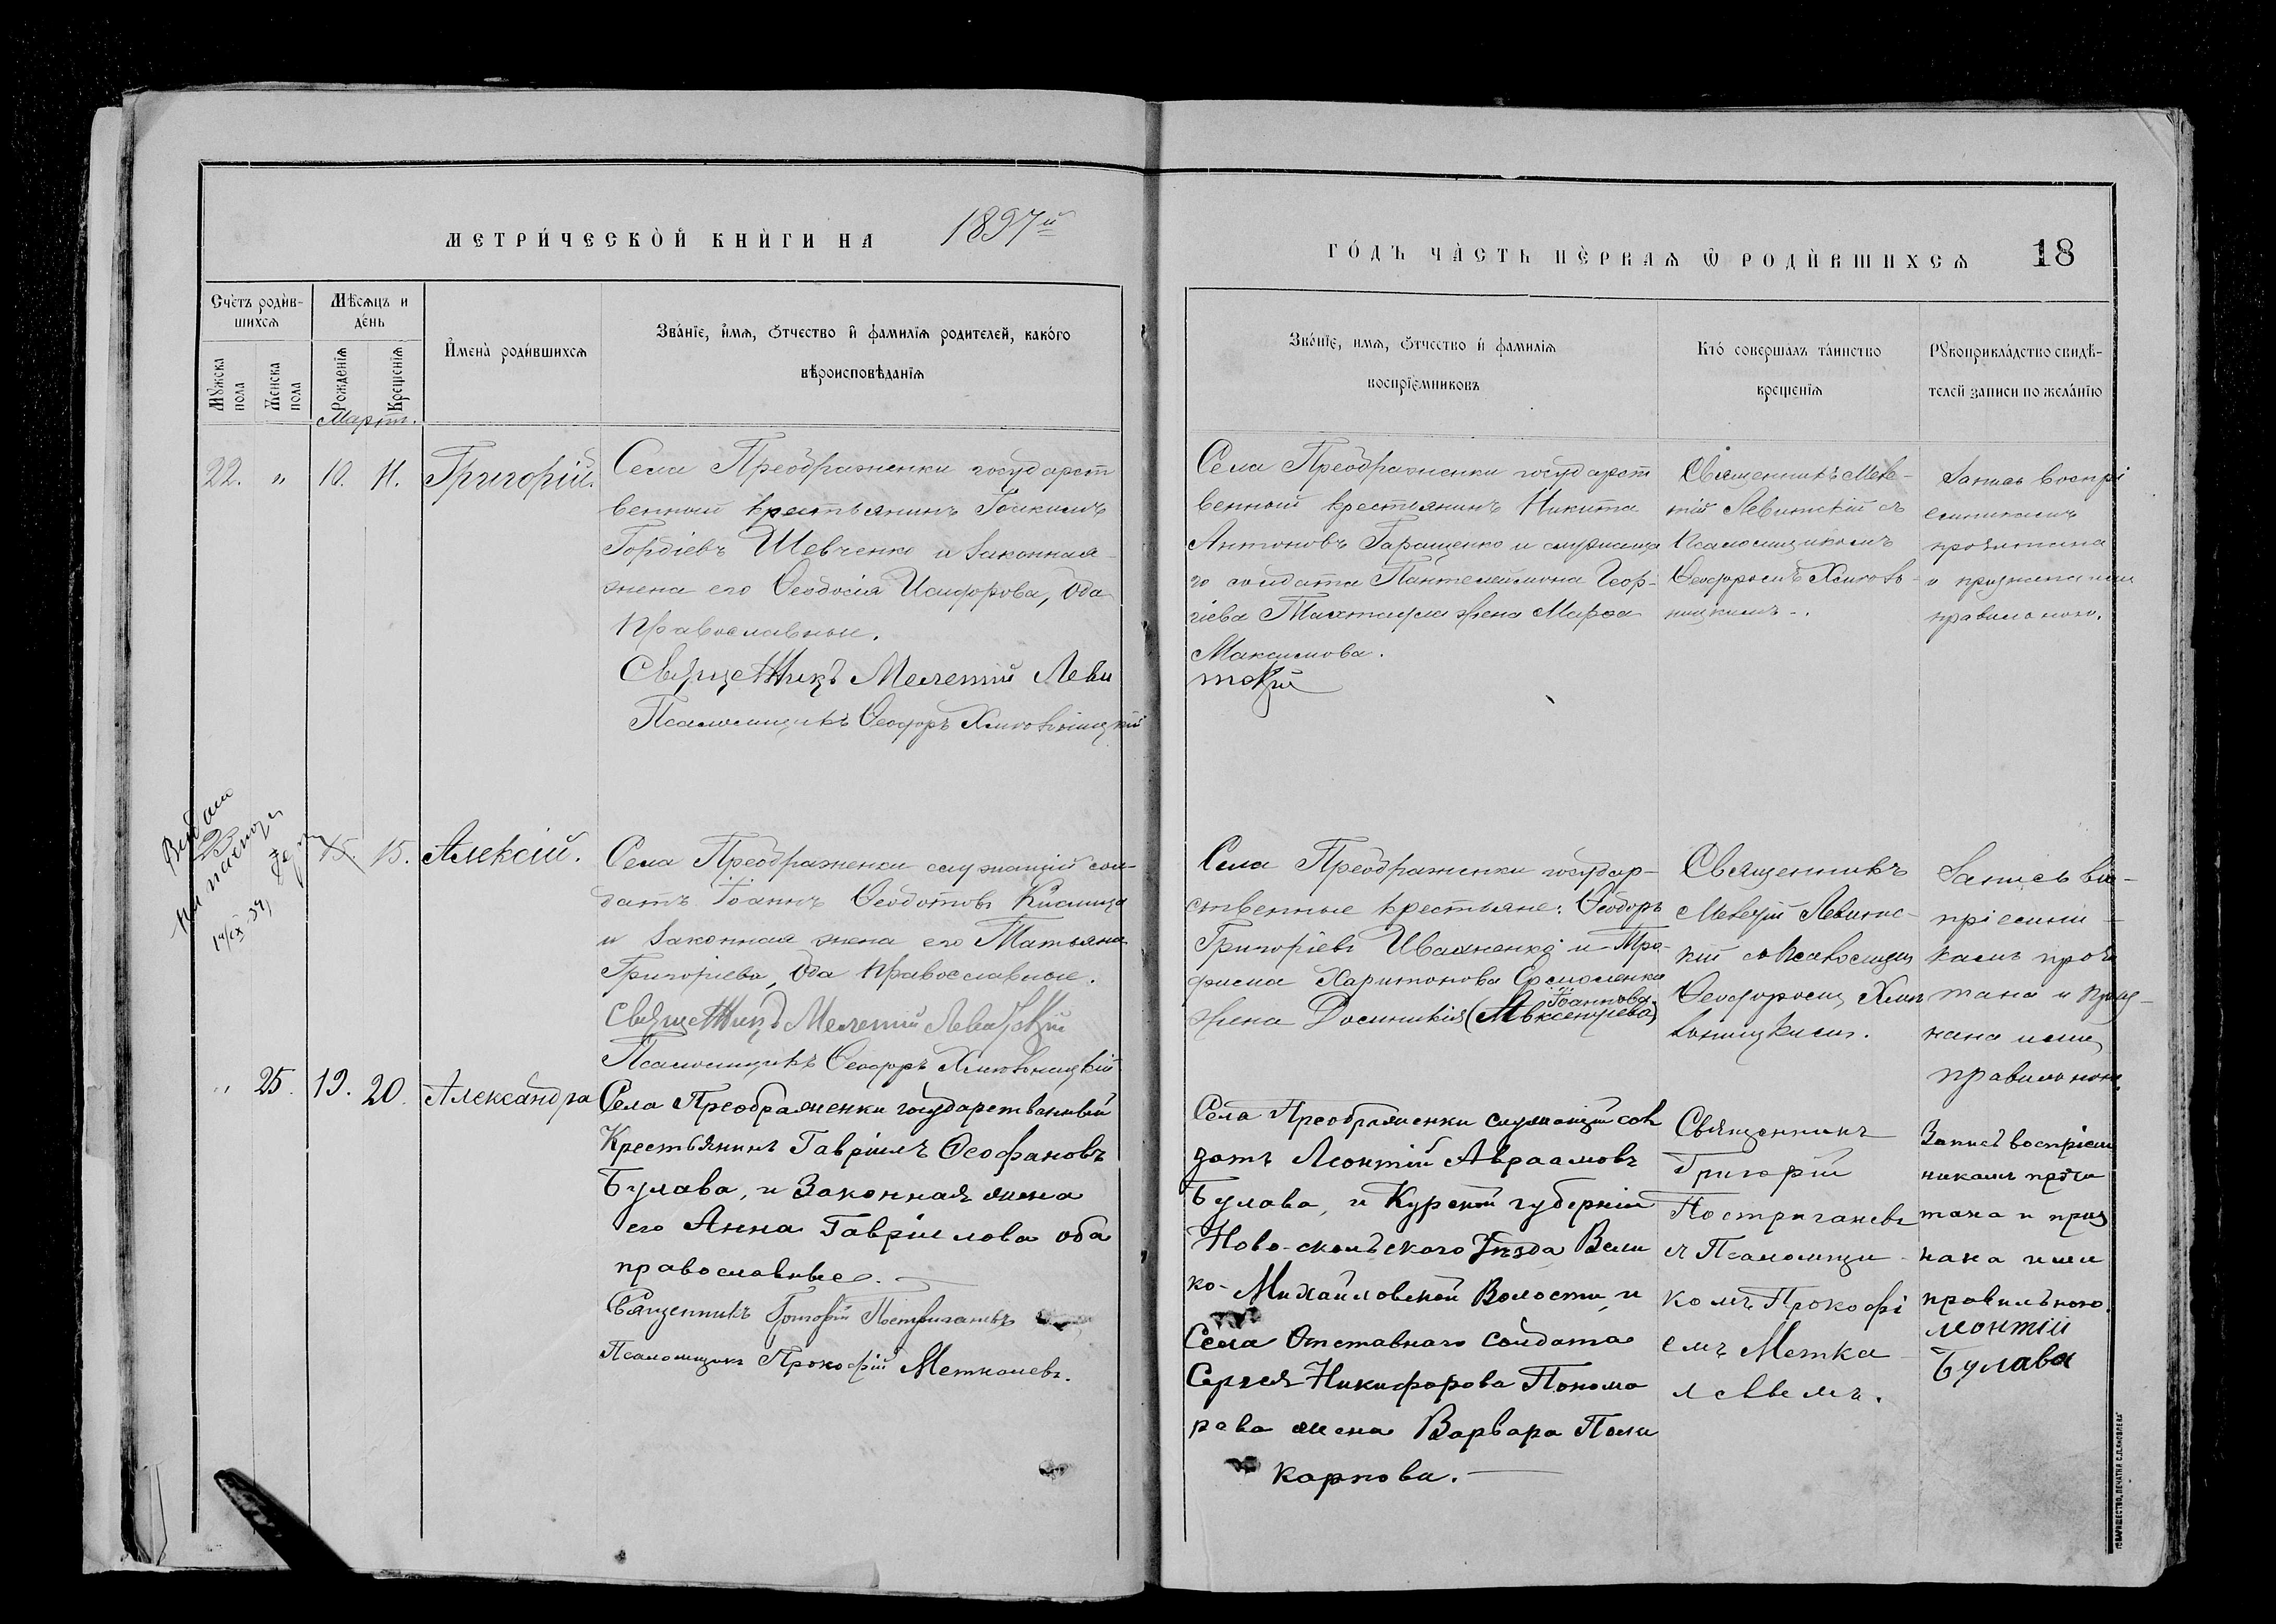 МЕТРИ́ЧЕСКОЙ КНИ́ГИ НА 1897й
ГО́ДЪ ЧА́СТЬ ПЕ́РВАѦ Ѡ РОДИ́ВШИХСѦ 18
Сче́тъ роди́в-
шихсѧ
Мꙋ́жска пола
Же́нска пола
Мѣ́сѧцъ и
де́нь
Рожденїѧ
Крещенїѧ
И́мена̀ роди́вшихсѧ
Зва́нїе, и́мѧ, ѻ́тчество и фами́лїѧ родителей, како́го
вѣроисповѣданїѧ
Зва́нїе, имѧ, ѻ́тчество и фами́лїѧ
воспрїе́мниковъ
Кто́ соверша́лъ та́инство
крещенїѧ
Рꙋкоприкла́дство свидѣ́-
телей записи по жела́нїю
Мартъ.
22. " 10. 11. Григорій.
Села Преображенки государст
венный крестьянинъ Іоакимъ
Гордіевъ Шевченко и законная
жена его Ѳеодосія Исидорова, оба
православные.
Священникъ Мелетій Леви
тскій
Псаломщикъ Ѳеодоръ
Села Преображенки государст
венный крестьянинъ Никита
Антоновъ Гаращенко и служаща
го солдата Пантелеймона Геор-
гіева жена Марѳа
Максимова.
Священникъ Меле-
тій Левитскій съ
Псаломщикомъ
Ѳеодоромъ
Запись воспрі
емникамъ
прочитана
и признана ими
правильною.
Выдано
15. 15. Алексій.
Села Преображенки служащій сол-
датъ Іоаннъ Ѳеодотовъ
и законная жена его Татьяна
Григоріева, оба православные.
Священникъ Мелетій Левитскій
Псаломщикъ Ѳеодоръ
Села Преображенки государ-
ственные крестьяне: Ѳеодоръ
Григоріевъ Иващенко и Тро-
фима Харитонова Ермоленка
Іоаннова
жена Домникія (Авксентіева)
Священникъ
Мелетій Левитс-
кій съ Псаломщик
Ѳеодоромъ
Запись вос-
пріемни-
камъ прочи
тана и приз-
нана ими
правильною.
" 25. 19. 20. Александра
Села Преображенки государственный
Крестьянинъ Гавріилъ Ѳеофановъ
Булава, и Законная жена
его Анна Гавріилова оба
православные.
Священникъ Григорій Постригачевъ
Псаломщикъ Прокофій Меткалевъ.
Села Преображенки служащій сол
датъ Леонтій Авраамовъ
Булава, и Курской губерніи
Ново-скольского Уѣзда Вели
ко-Михайловской Волости, и
Села Отставнаго Солдата
Сергея Никифорова Понома
рева жена Варвара Поли
карпова.
Священникъ
Григорій
Постригачевъ
съ Псаломщи
комъ Прокофі
емъ Метка
левымъ.
Запись воспріем
никамъ прочи
тана и приз
нана ими
правильною.
Леонтій
Булава
ТОВАРИЩЕСТВО „ПЕЧАТНЯ С.П.ЯКОВЛЕВА"